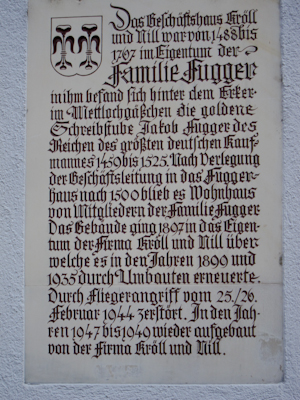 Das Geschäftshaus Kröll
und Nill war von 1488 bis
1767 im Eigentum der
Familie Fugger
in ihm befand sich hinter dem Erker
im Mettlochgäßchen die goldene
Schreibstube Jakob Fugger des
Reichen des größten deutschen Kauf-
mannes 1459 bis 1525. Nach Verlegung
der Geschäftsleitung in das Fugger-
haus nach 1500 blieb es Wohnhaus
von Mitgliedern der Familie Fugger
Das Gebäude ging 1897 in das Eigen-
tum der Firma Kröll und Nill über
welche es in den Jahren 1899 und
1935 durch Umbauten erneuerte.
Durch Fliegerangriff vom 25./26.
Februar 1944 zerstört. In den Jah-
ren 1947 bis 1949 wieder aufgebaut
von der Firma Kröll und Nill.